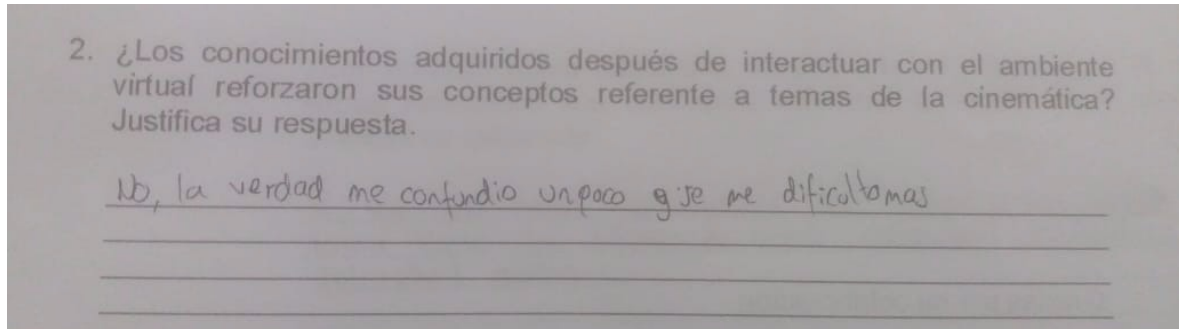 2. ¿Los conocimientos adquiridos después de interactuar con el ambiente
virtual reforzaron sus conceptos referente a temas de la cinemática?
Justifica su respuesta.
No, la verdad me confundio un poco y se me dificulto mas